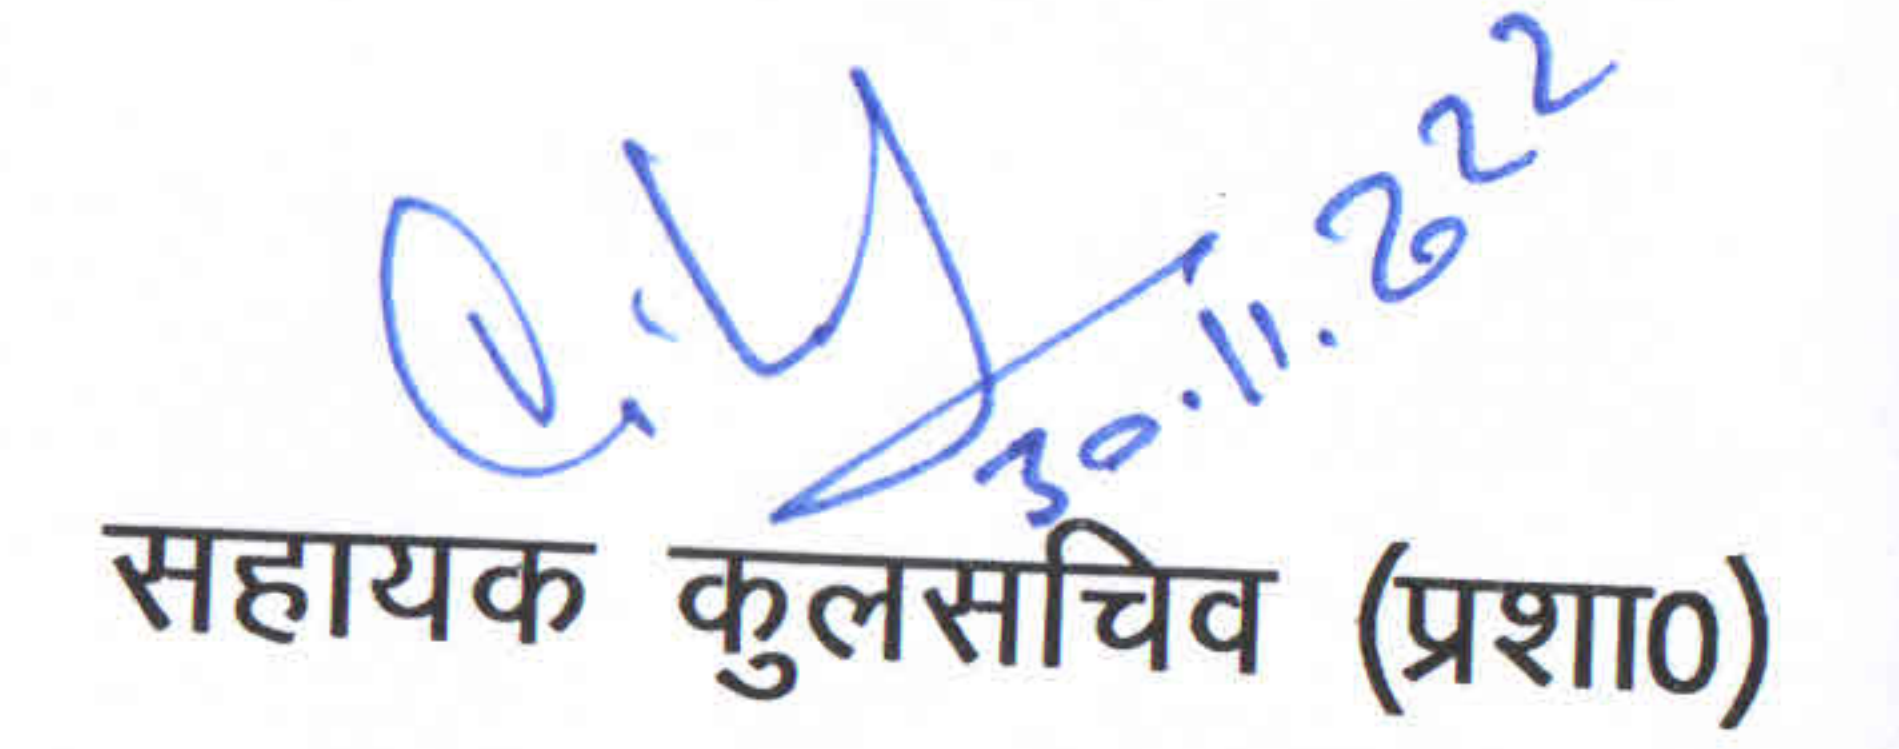 30.11.2022
सहायक कुलसचिव (प्रशा0)